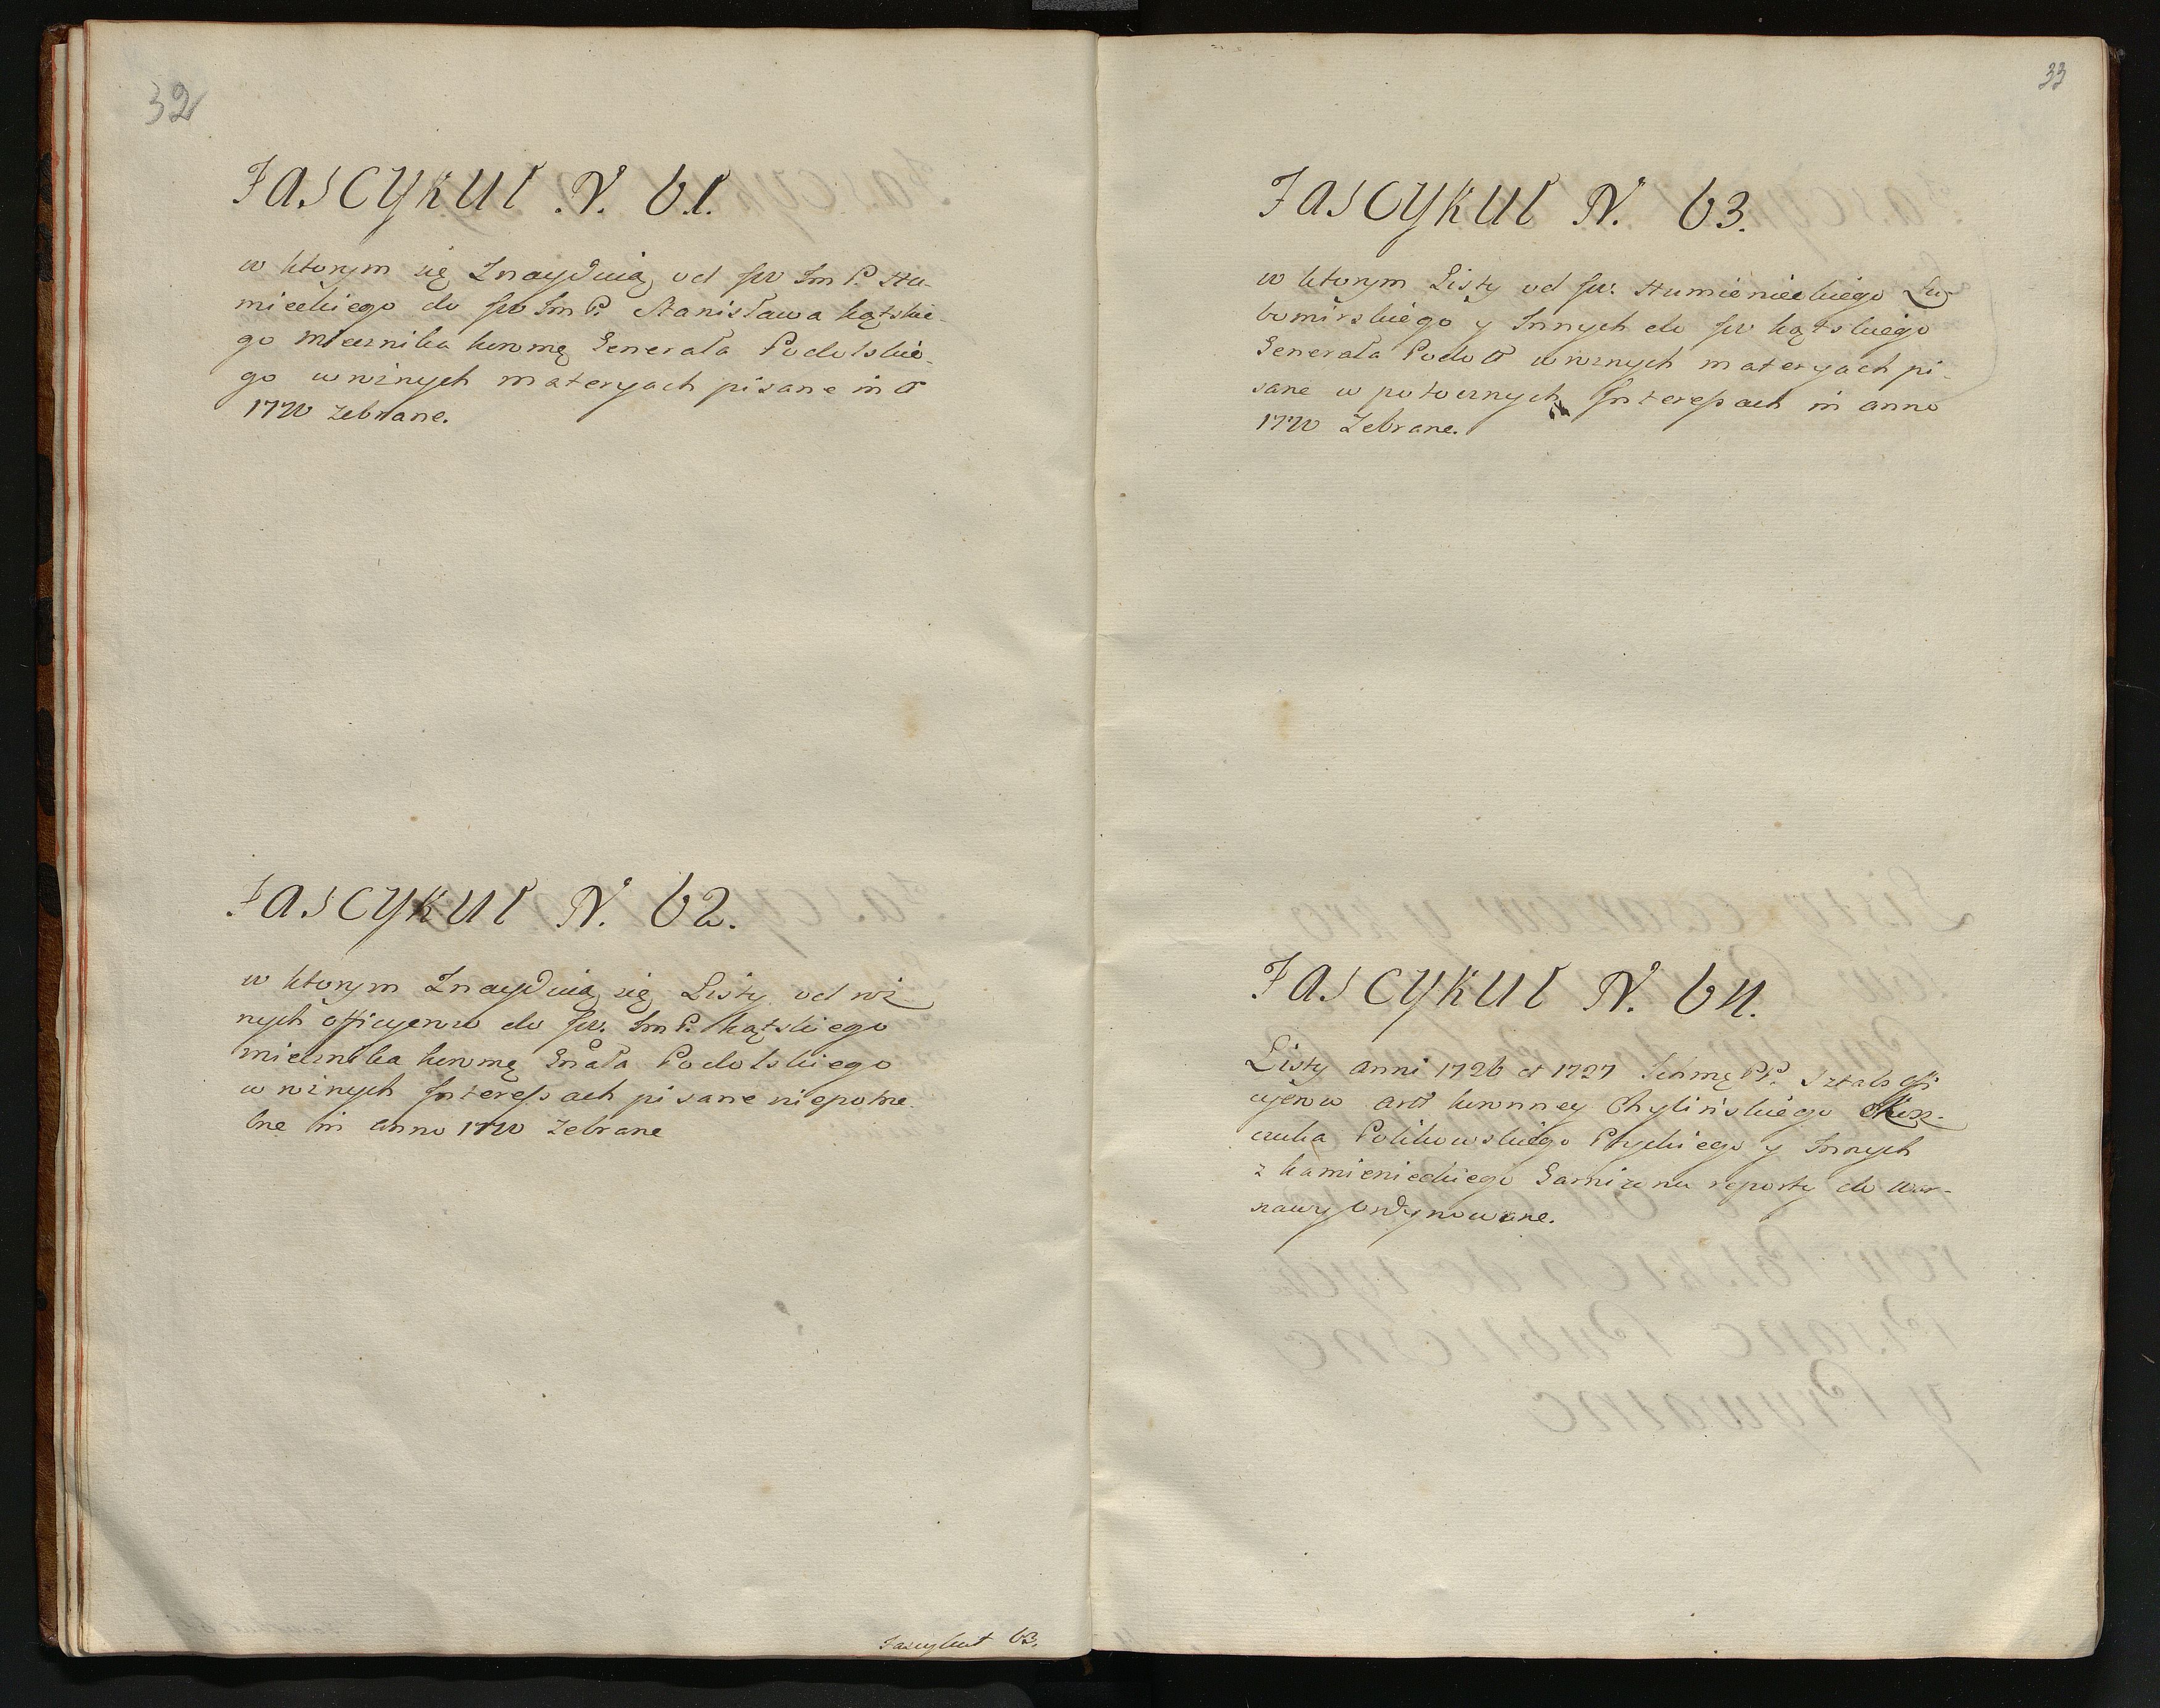 32
Fascykuł N. 61.
w ktorym się Znayduią od JW Im P. Hu-
mieckiego do JW Im P. Stanisława kątskie-
go Miecznika koronnę Generała Podolskie-
go w rożnych materyach pisane in aō
1770 zebrane.
Fascykuł N. 62.
w ktorym Znayduią się Listy od roż
nych officyerow do JW. Im P. kątskiego
miecznika koronnę Gnāła Podolskiego
w rożnych Interessach pisane niepotrze
bne in anno 1770 zebrane
Fascykuł 63.
33
Fascykuł N. 63.
w ktorym Listy od JW. Humienieckiego Lu-
bomirskiego y Innych do JW kątskiego
Generała Podol w rożnych materyach pi-
sane w potocznych Interessach in anno
1770 Zebrane.
Fascykuł N. 64.
Listy anni 1726 et 1727 Ichmę PP. sztabs offi
cyerow koronney Chylińskiego
Polikowskiego y Innych
z kamienieckiego Garnizonu reporty do War-
szawy ordynowane.